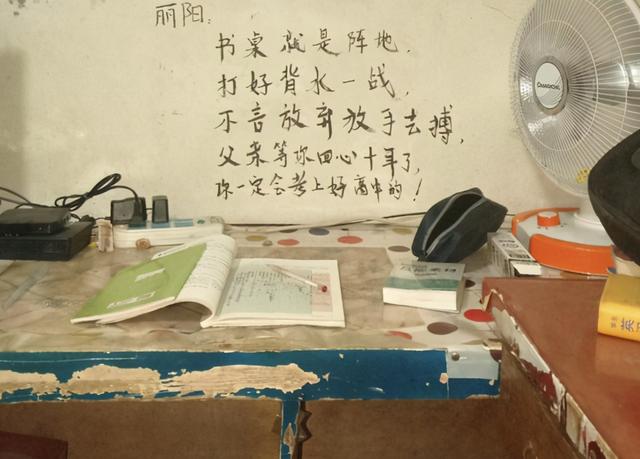 丽阳:
书桌就是阵地.
打好背水一战,
不言放弃放手去搏,
父亲等你回心十年了,
你一定会考上好高中的!
CHANGHONG